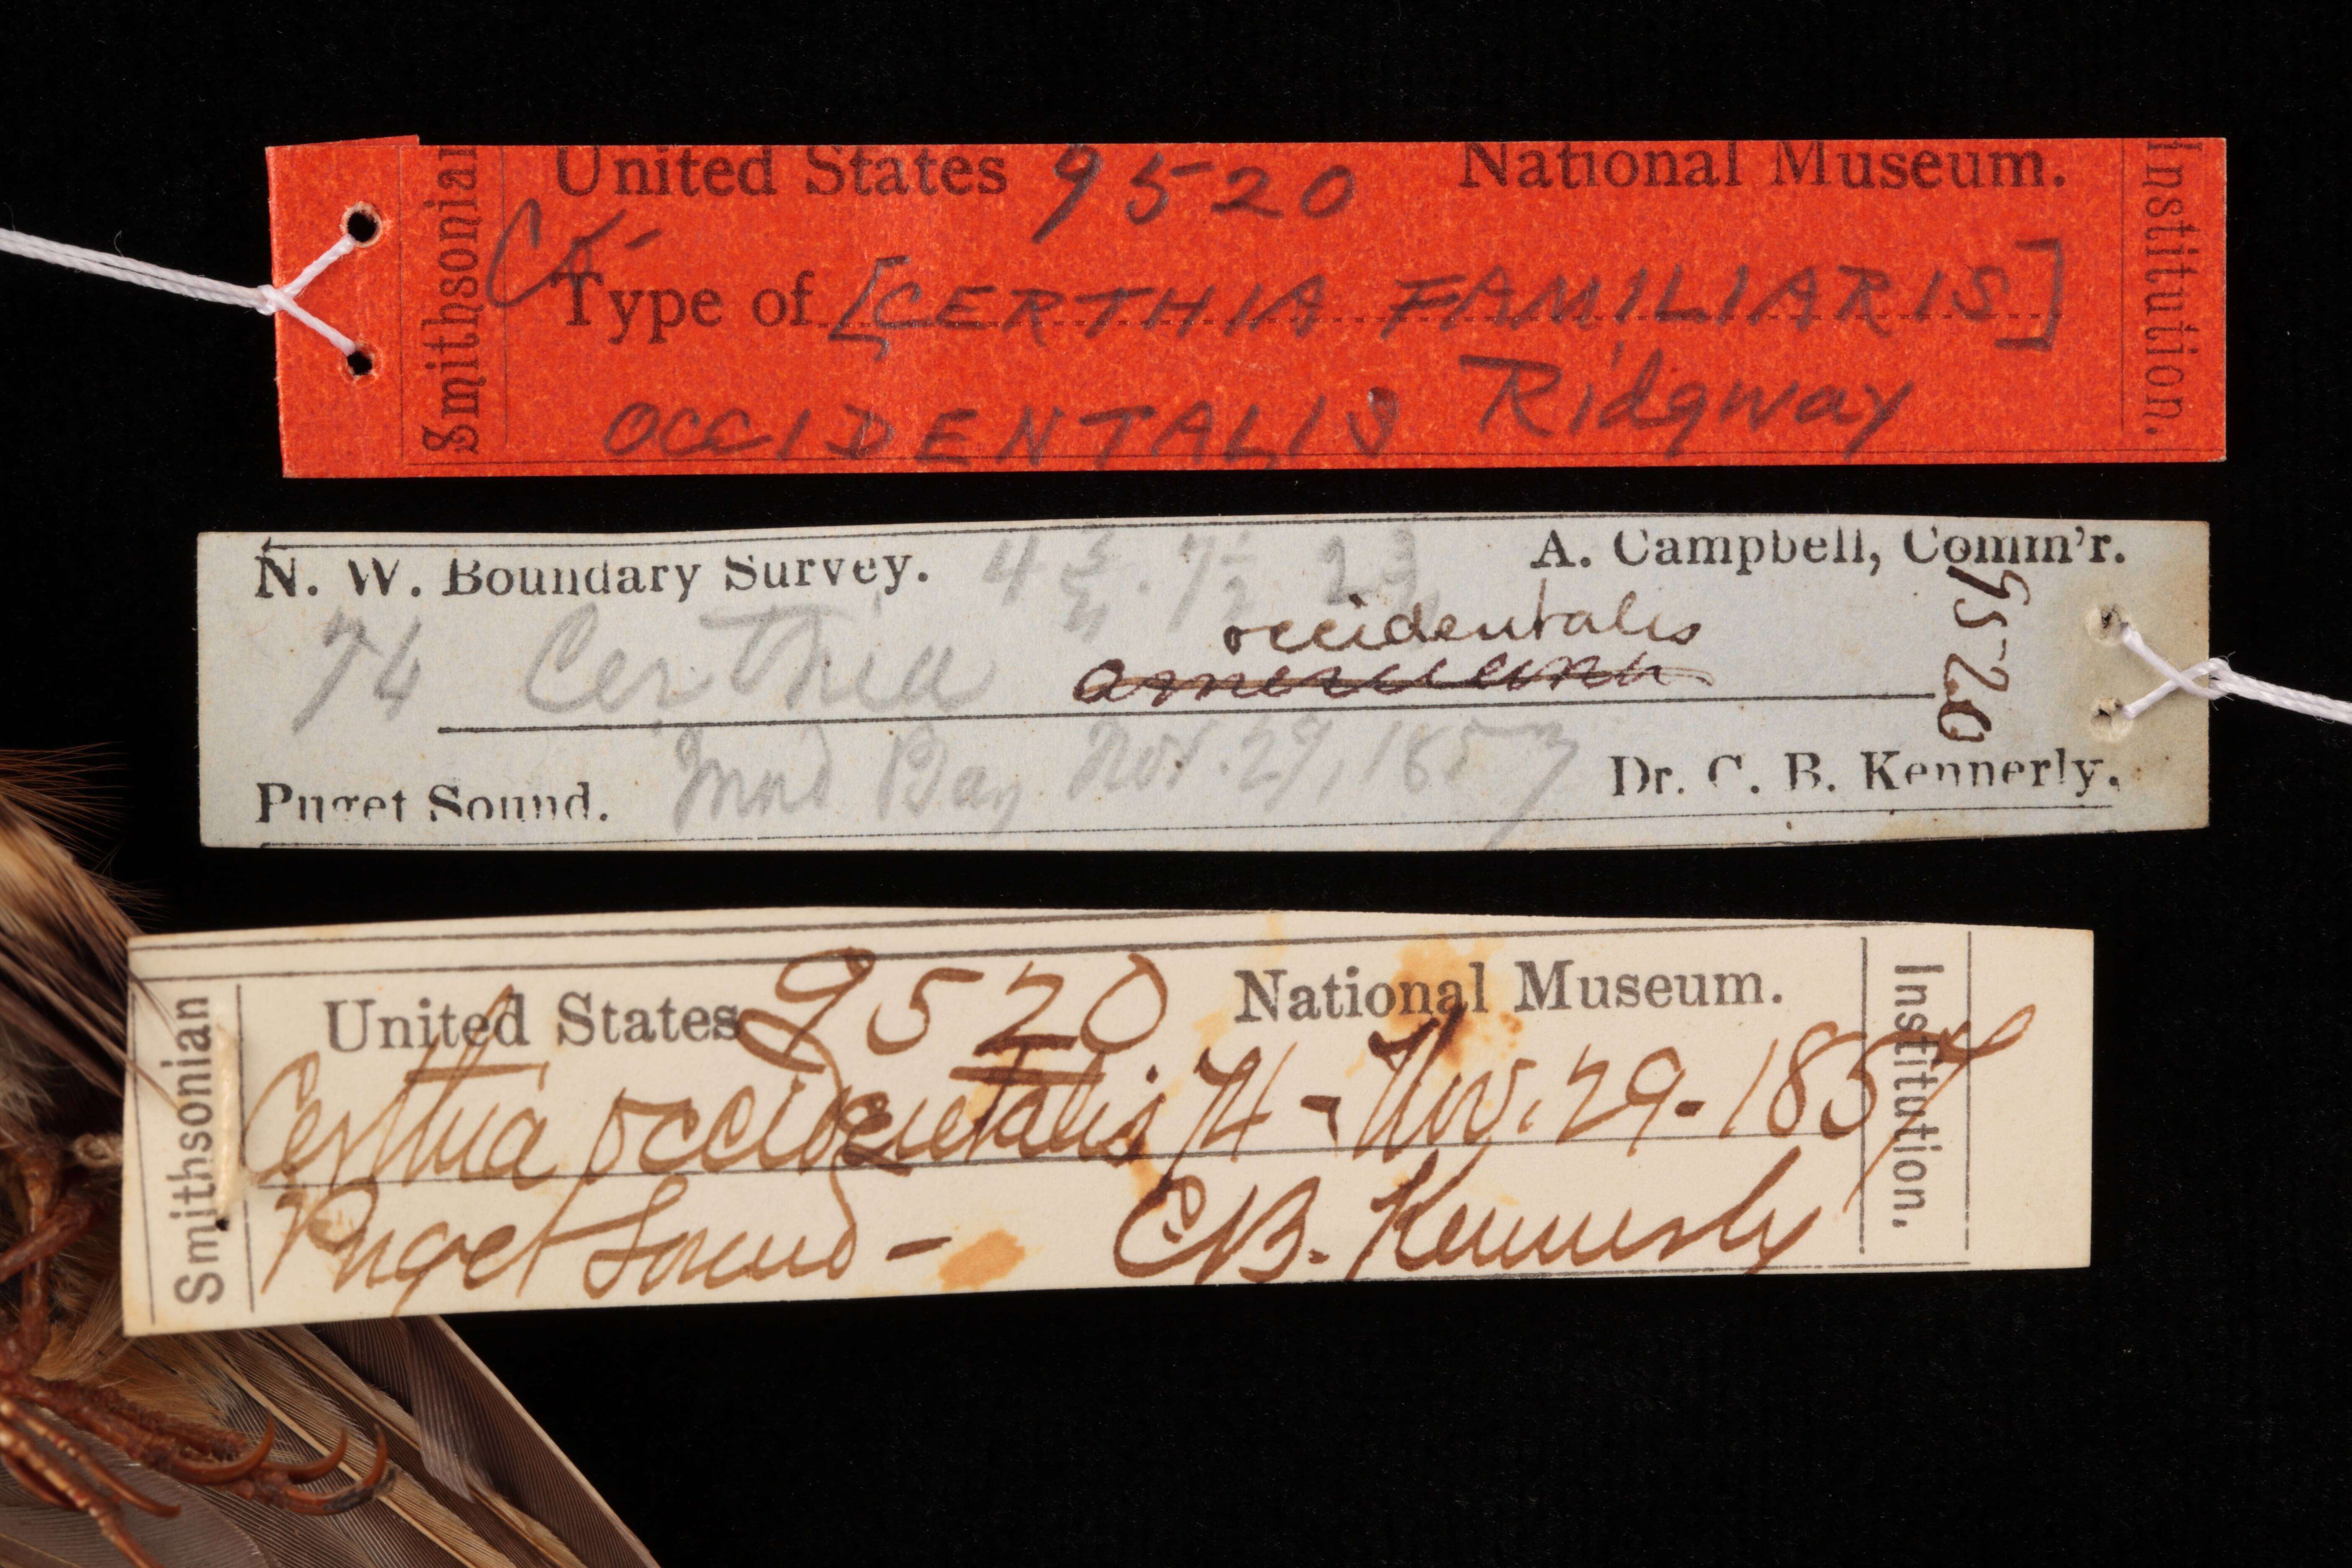 Smithsonian
United States 9520 National Museum.
Co-
Type of [CERTHIA FAMILIARIS]
OCCIDENTALIS Ridgway
Institution.
N. W. Boundary Survey. 4 3/4 . 7 1/2 2 3/4 A. Campbell, Comm'r.
occidentalis
74 Certhia americana
9520
Puget Sound. Mud Bay Nov. 29, 1857 Dr. C. B. Kennerly.
Smithsonian
United States 9520 National Museum.
Certhia occidentalis 74 - Nov. 29 - 1857
Puget Sound - C.B. Kennerly
Institution.